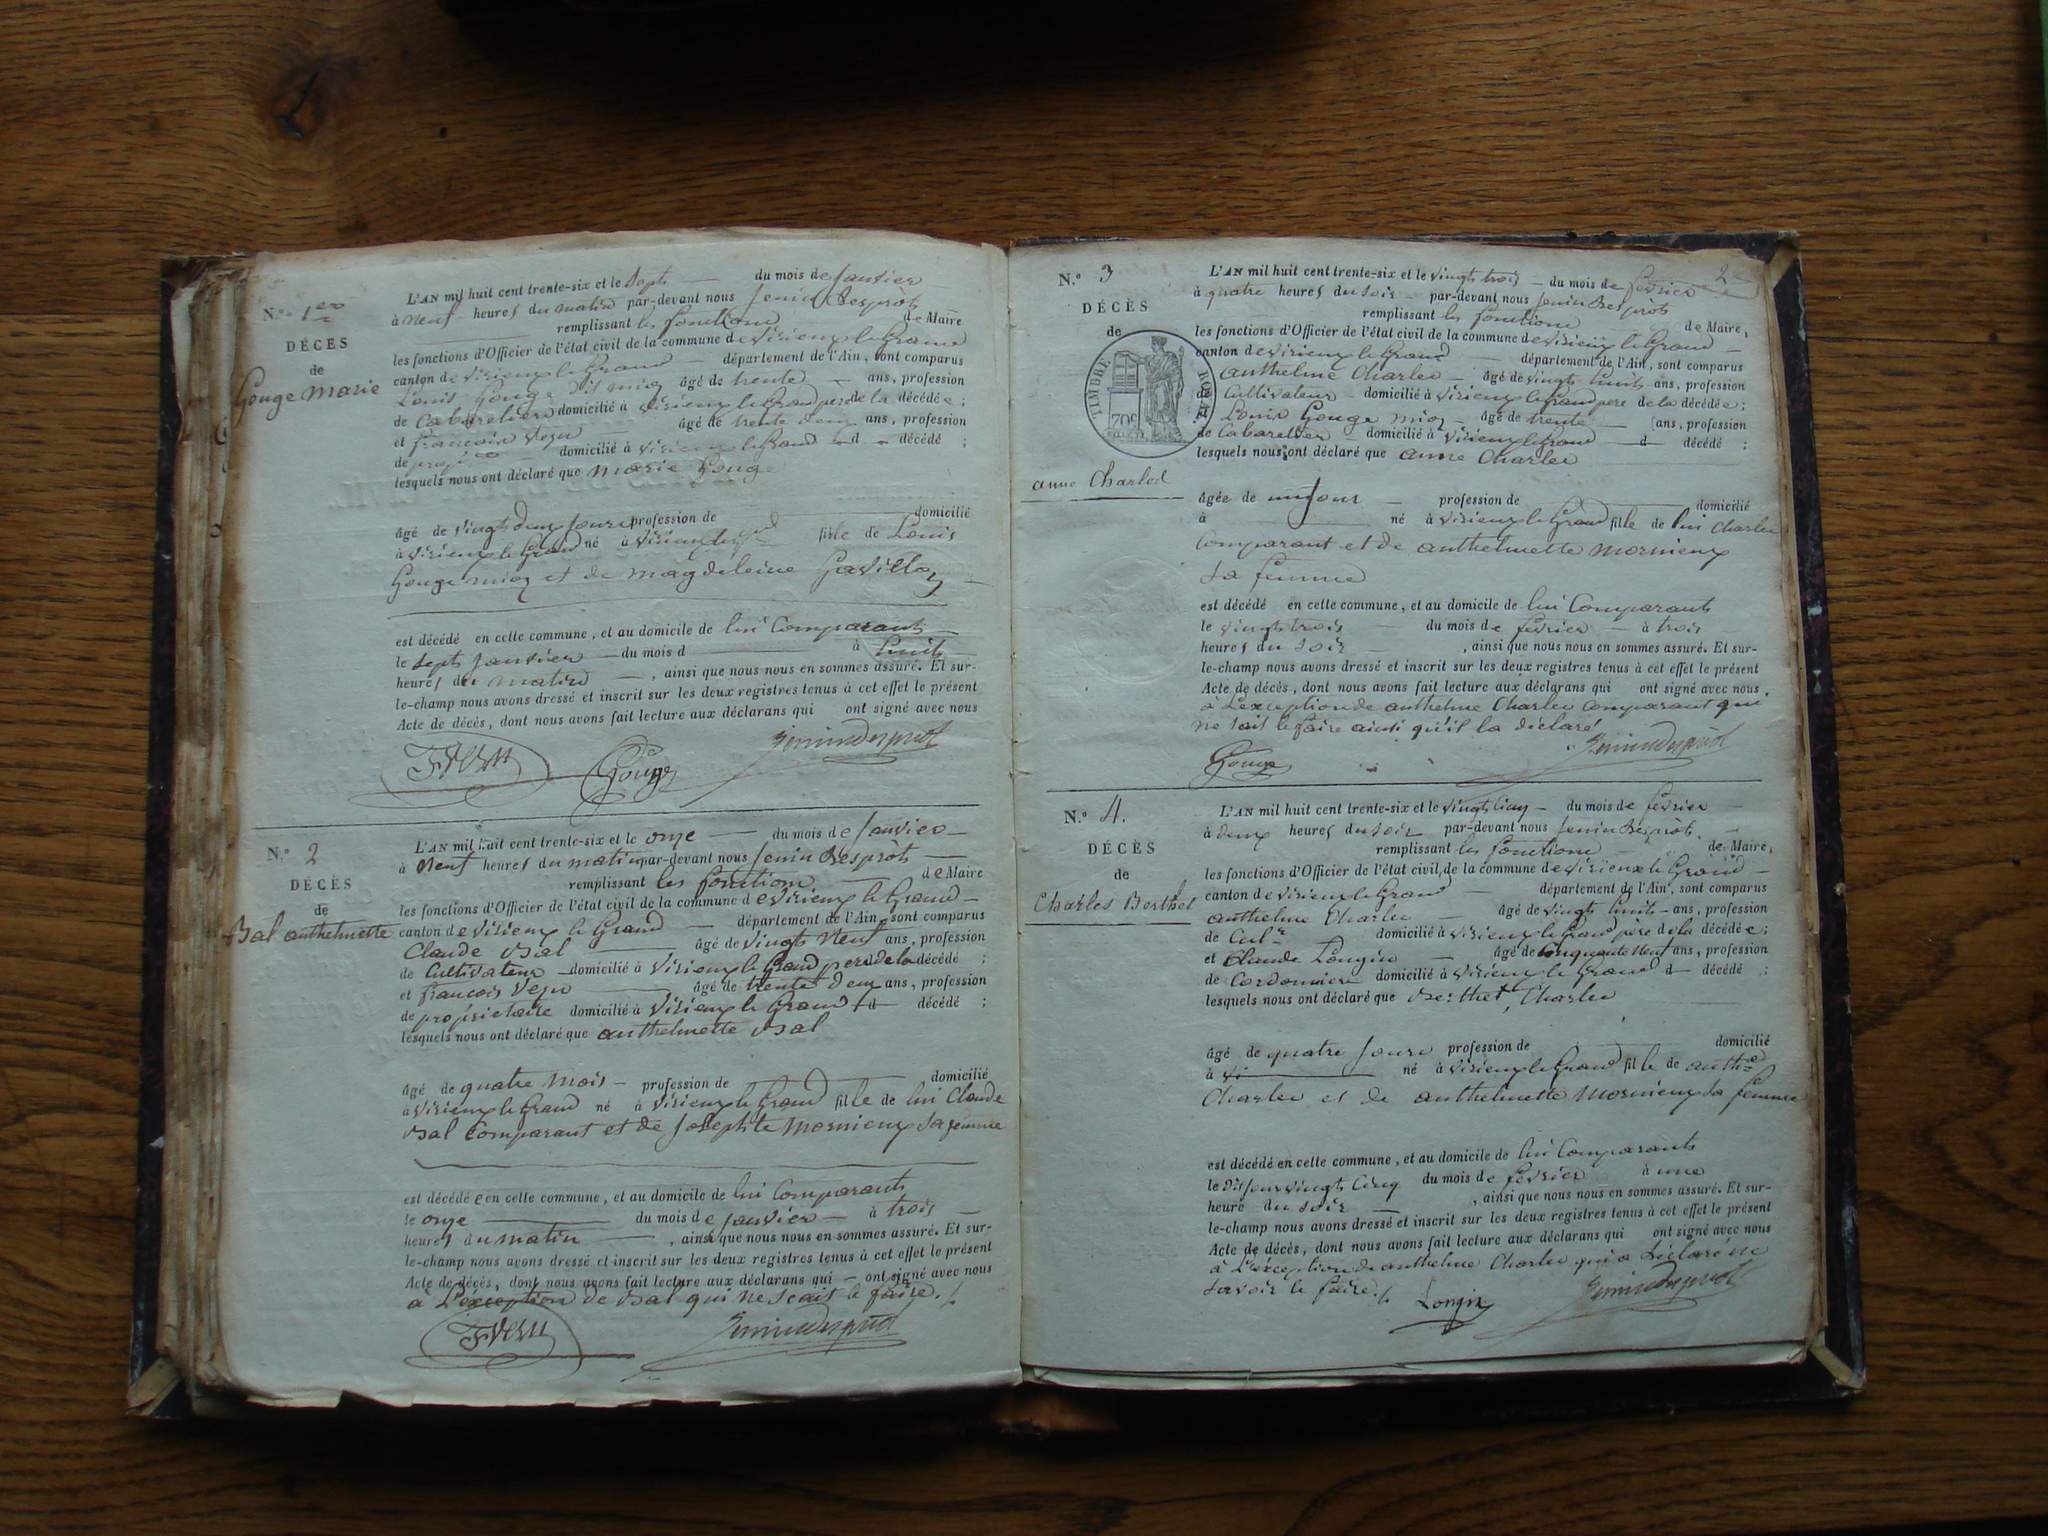 N.° 1er
DÉCÈS
de
Gouge Marie
L'AN mil huit cent trente-six et le Sept du mois de Janvier
à neuf heures du matin par-devant nous Jenin Desprôts
remplissant les fonctions de Maire
les fonctions d'Officier de l'état civil de la commune de Virieux le Grand
canton de Virieux le Grand département de l'Ain, sont comparus
Louis Gouge dit mioz âgé de trente ans, profession
de Cabaretier domicilié à Virieux le Grand pere de la décédée ;
et françois Vezu âgé de trente deux ans, profession
de domicilié à Virieux le Grand d décédé ;
lesquels nous ont déclaré que Marie Gouge
âgé de vingt deux Jours profession de domicilié
à Virieux le Grand né à Virieux le gd fille de Louis
Gouge mioz et de magdeleine Gavillon
est décédé en cette commune, et au domicile de lui Comparants
le Sept Janvier du mois d à huit
heures du matin , ainsi que nous nous en sommes assuré. Et sur-
le-champ nous avons dressé et inscrit sur les deux registres tenus à cet effet le présent
Acte de décès, dont nous avons fait lecture aux déclarans qui ont signé avec nous
FVezu Gouge Jenindesprôt
N.° 2
DÉCÈS
de
Bal anthelmette
L'AN mil huit cent trente-six et le onze du mois de Janvier
à Neuf heures du matin par-devant nous Jenin Desprôts
remplissant les fonctions de Maire
les fonctions d'Officier de l'état civil de la commune de Virieux le Grand
canton de Virieux le Grand département de l'Ain, sont comparus
Claude Bal âgé de vingt Neuf ans, profession
de Cultivateur domicilié à Virieux le Grand pere de la décédé ;
et françois Vezu âgé de trente deux ans, profession
de propriétaire domicilié à Virieux le Grand d décédé ;
lesquels nous ont déclaré que anthelmette Bal
âgé de quatre Mois profession de domicilié
à Virieux le Grand né à Virieux le Grand fille de lui Claude
Bal Comparant et de Josephte Mornieux Sa femme
est décédée en cette commune, et au domicile de lui Comparants
le onze du mois de Janvier à trois
heures du matin , ainsi que nous nous en sommes assuré. Et sur-
le-champ nous avons dressé et inscrit sur les deux registres tenus à cet effet le présent
Acte de décès, dont nous avons fait lecture aux déclarans qui ont signé avec nous
à L'éxception de Bal qui ne Scait le faire./.
FVezu Jenindesprôt
2e
N.° 3
DÉCÈS
de
TIMBRE ROYAL
70c
anne Charles
L'AN mil huit cent trente-six et le vingt trois du mois de février
à quatre heures du Soir par-devant nous Jenin Desprôts
remplissant les fonctions de Maire,
les fonctions d'Officier de l'état civil de la commune de Virieux le Grand
canton de Virieux le Grand département de l'Ain, sont comparus
anthelme Charles âgé de vingt huit ans, profession
de Cultivateur domicilié à Virieux le Grand pere de la décédée ;
Louis Gouge mioz âgé de trente ans, profession
de Cabaretier domicilié à Virieux le Grand d décédé ;
lesquels nous ont déclaré que anne Charles
âgée de un Jour profession de domicilié
à né à Virieux le Grand fille de lui Charles
Comparant et de anthelmette Mornieux
Sa femme
est décédé en cette commune, et au domicile de lui Comparants
le vingt trois du mois de février à trois
heures du Soir , ainsi que nous nous en sommes assuré. Et sur-
le-champ nous avons dressé et inscrit sur les deux registres tenus à cet effet le présent
Acte de décès, dont nous avons fait lecture aux déclarans qui ont signé avec nous,
à L'éxception de anthelme Charles Comparant qui
ne Sait le faire ainsi qu'il la déclaré
Gouge Jenindesprôt
N.° 4.
DÉCÈS
de
Charles Berthet
L'AN mil huit cent trente-six et le vingt Cinq du mois de février
à deux heures du Soir par-devant nous Jenin Desprôts.
remplissant les fonctions de Maire,
les fonctions d'Officier de l'état civil de la commune de Virieux le Grand
canton de Virieux le Grand département de l'Ain, sont comparus
anthelme Charles âgé de vingt huit ans, profession
de Culr domicilié à Virieux le Grand pere de la décédée ;
et Claude Longin âgé de Cinquante Neuf ans, profession
de Cordonnier domicilié à Virieux le Grand d décédé ;
lesquels nous ont déclaré que Berthet Charles
âgé de quatre Jours profession de domicilié
à Vi né à Virieux le Grand fille de anthe
Charles et de anthelmette Mornieux Sa femme
est décédé en cette commune, et au domicile de lui Comparants
le Dit Jour vingt Cinq du mois de février à une
heure du Soir , ainsi que nous nous en sommes assuré. Et sur-
le-champ nous avons dressé et inscrit sur les deux registres tenus à cet effet le présent
Acte de décès, dont nous avons fait lecture aux déclarans qui ont signé avec nous
à L'éxception de anthelme Charles qui a Déclaré ne
Savoir le faire./.
Longin Jenindesprôt